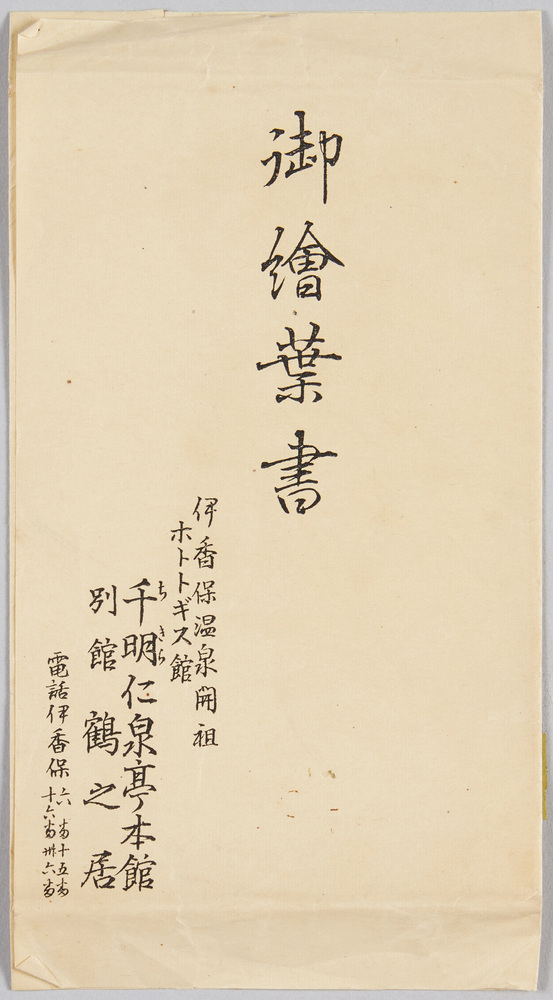 御繪葉書
伊香保温泉開祖
ホトトギス館
千明仁泉亭本館
ちきら
別館鶴之居
電話伊香保六番十五番
十六番卅六番